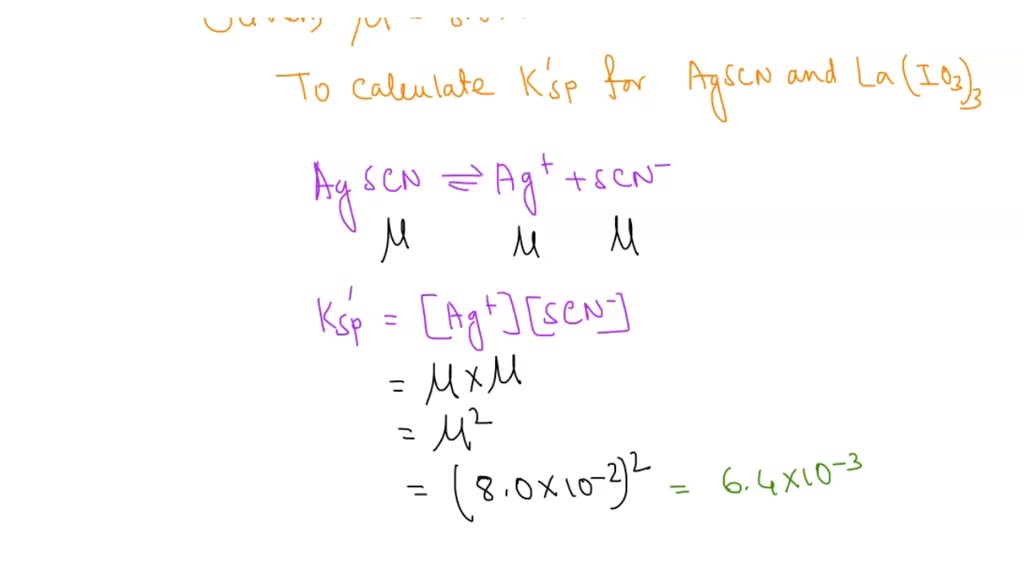 To calculate K'sp for AgSCN and La(IO3)3
AgSCN ⇌ Ag+ + SCN-
μ μ μ
K'sp = [Ag+][SCN-]
= μ×μ
= μ²
= (8.0×10⁻²)² = 6.4×10⁻³